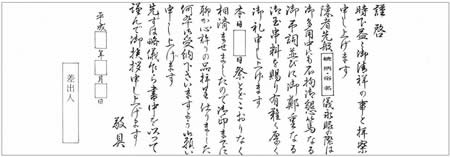 謹啓
時下益々御清祥の事と拝察
申し上げます
陳者先般 続柄・俗名 儀永眠の際は
御多用中にも不拘御懇篤なる
御弔詞並びに御鄭重なる
御玉串料を賜り有難く厚く
御礼申し上げます
本日 日祭とどこおりなく
相済ませましたので御印までに
聊か心許りの品拝呈仕りました
何卒御受納下さいますようお願い
申し上げます
先ずは略儀乍ら書中を以って
謹んで御挨拶申し上げます
敬具
平成 年 月 日
差出人